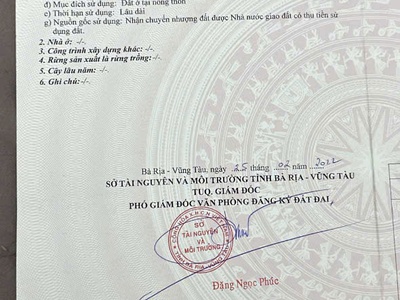 đ) Mục đích sử dụng: Đất ở tại nông thôn
e) Thời hạn sử dụng: Lâu dài
g) Nguồn gốc sử dụng: Nhận chuyển nhượng đất được Nhà nước giao đất có thu tiền sử
dụng đất.
2. Nhà ở: -/-.
3. Công trình xây dựng khác: -/-.
4. Rừng sản xuất là rừng trồng: -/-.
5. Cây lâu năm: -/-.
6. Ghi chú: -/-.
Bà Rịa - Vũng Tàu, ngày 25 tháng 02 năm 2022
SỞ TÀI NGUYÊN VÀ MÔI TRƯỜNG TỈNH BÀ RỊA – VŨNG TÀU
TUQ. GIÁM ĐỐC
PHÓ GIÁM ĐỐC VĂN PHÒNG ĐĂNG KÝ ĐẤT ĐAI
SỞ
TÀI NGUYÊN
VÀ
MÔI TRƯỜNG
Đặng Ngọc Phúc